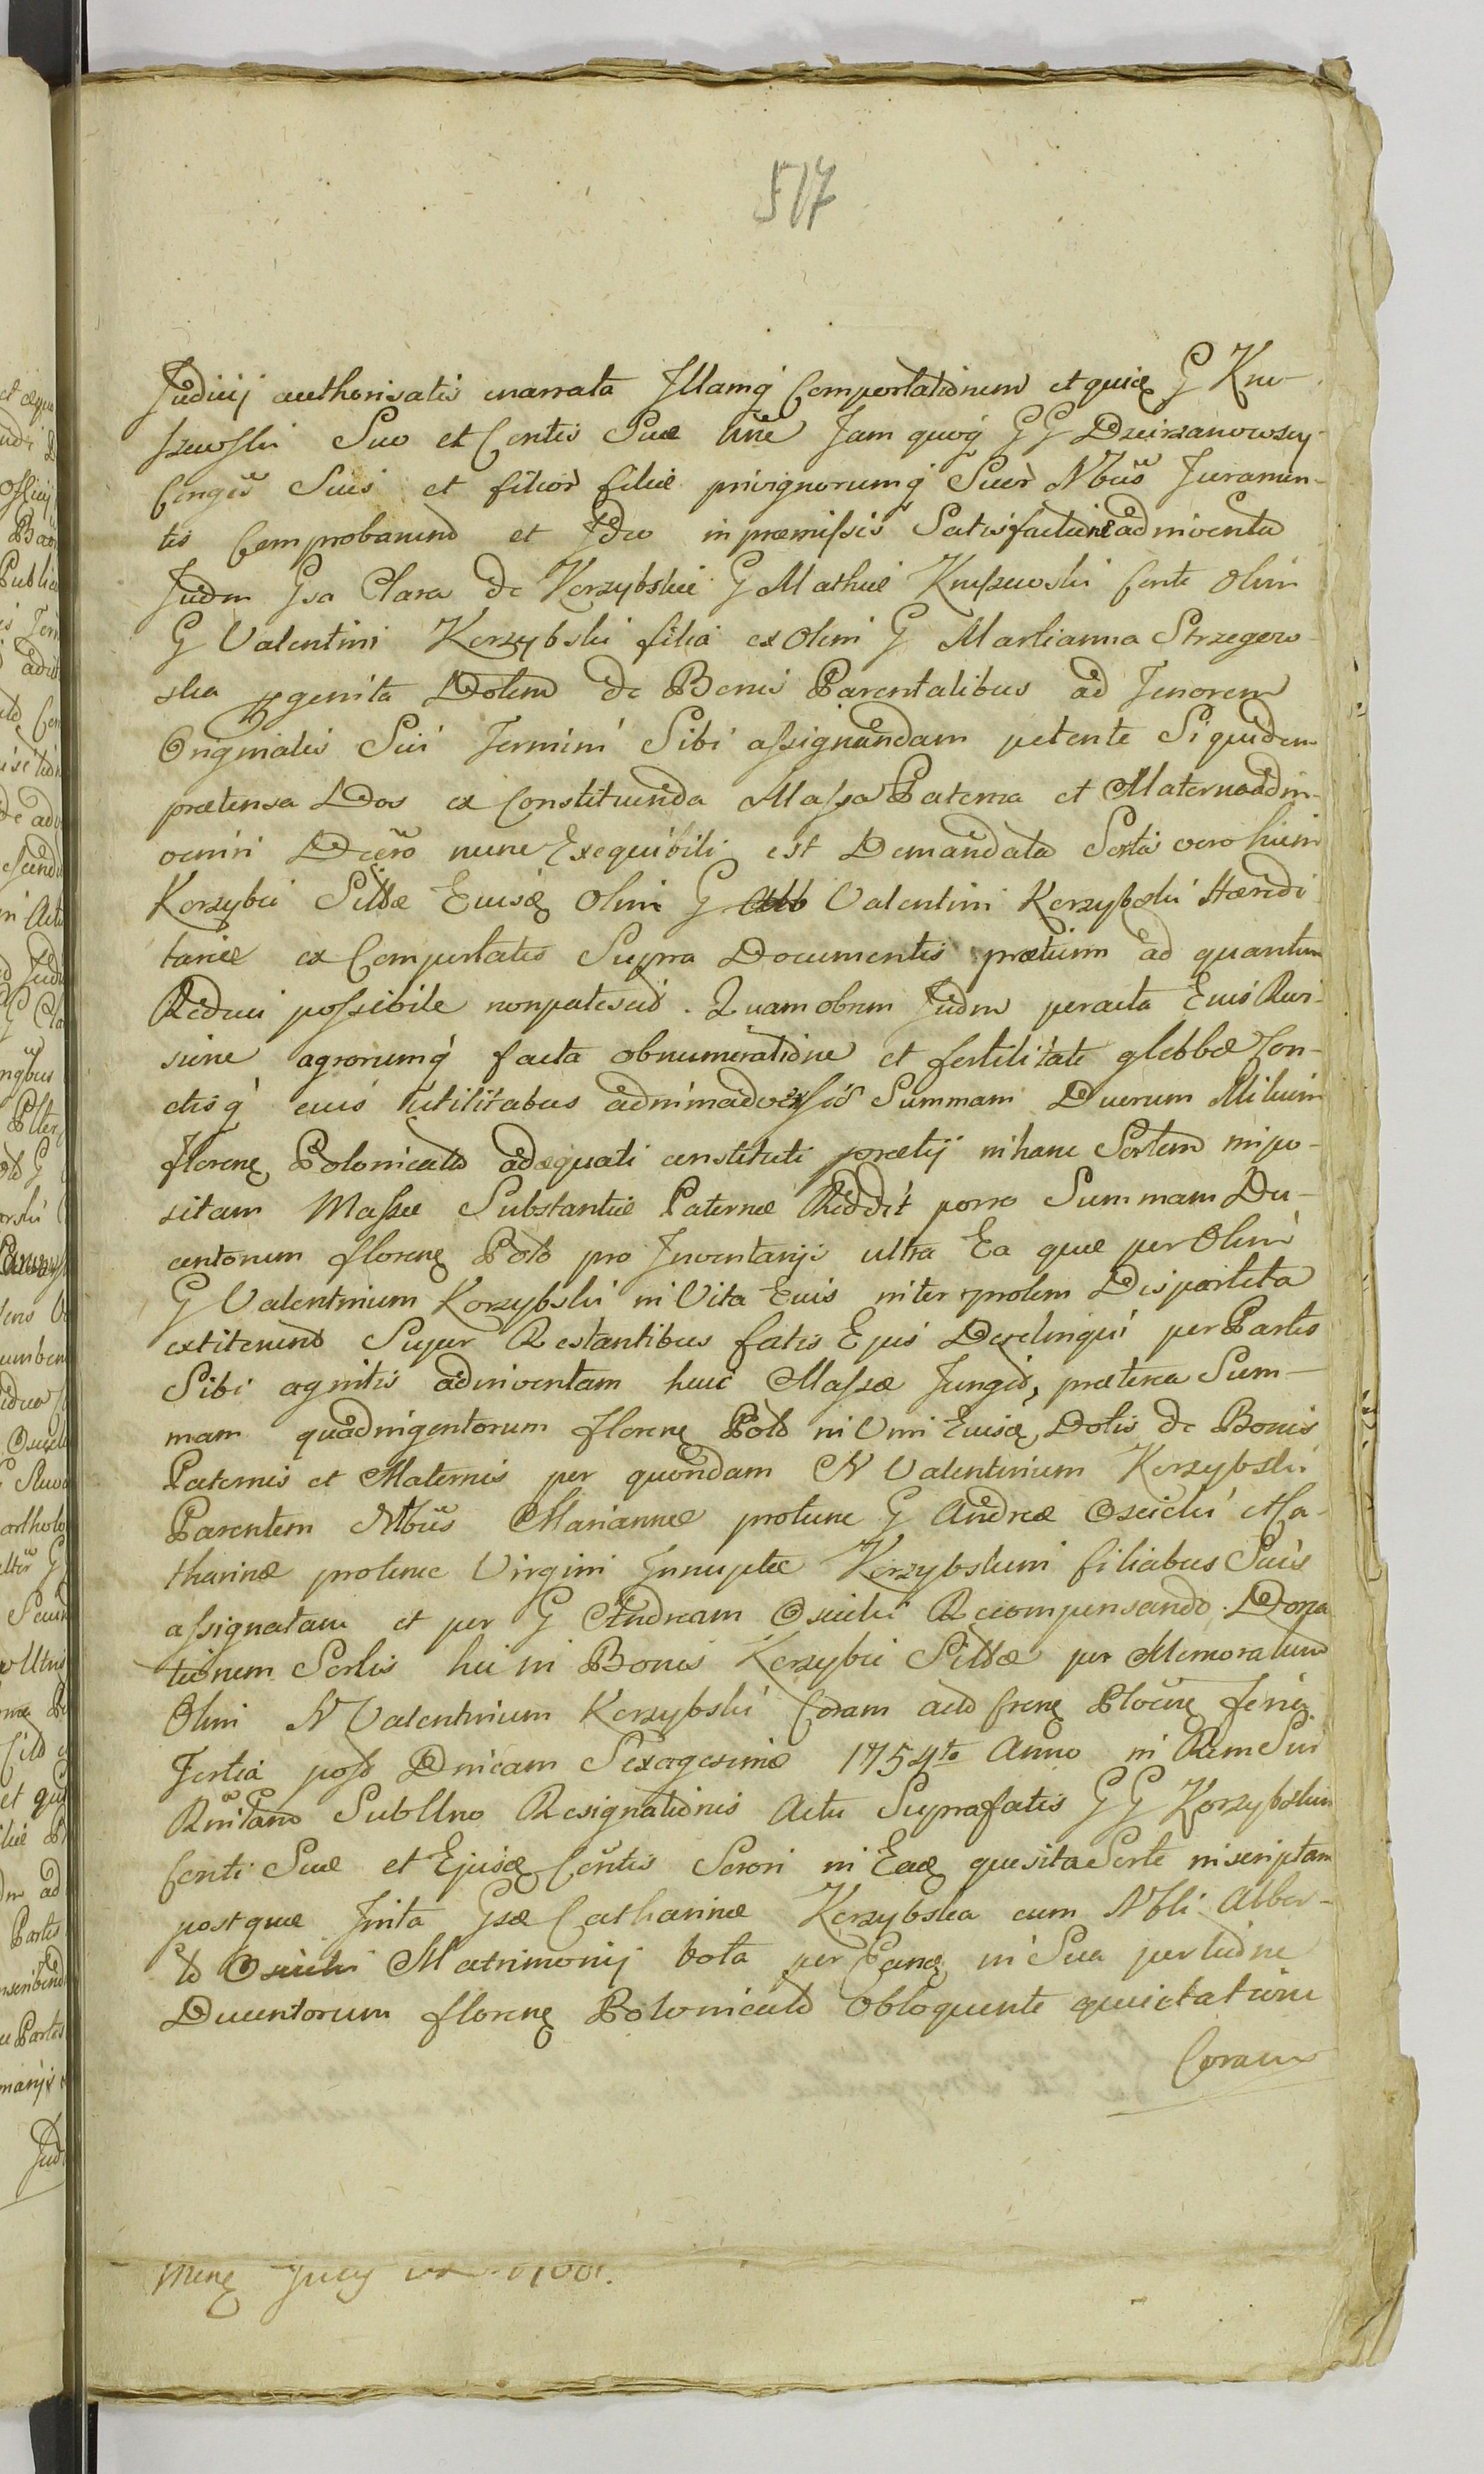 517
Judicij authorisatis enarrata Illamq̃ Comportationem et quia G Knu-
szewski Suo et Contis Suæ nñe Jam quoq̃ GG Dzierzanowscy
Congũ Suis et filior̀ filiæ privignorumq̃ Suor̀ Nbũs Juramen-
tis Comprobarunt et Ideo in præmissis Satisfactione adinventa
Judm Gsa Clara de Korzybskie G Mathiæ Knuszewski Conte Olim
G Valentini Korzybski filia ex Olim G Marianna Strzegow-
ska pgenita Dotem de Bonis Parentalibus ad Tenorem
Originalis Sui Termini Sibi assignandam petente Siquidem
prætensa Dos ex Constituenda Massa Paterna et Materna adin-
veniri Dcẽro nunc Exequibili est Demandata Sortis vero huic
Korzybie Sittæ Eiusdę Olim G Valentini Korzybski Hæredi-
tariæ ex Comportatis Supra Documentis prætium ad quantum
Reduci possibile non patescit. Quamobrem Judm peracta Eius Revi-
sione agrorumq̃ facta obnumeratione et fertilitate glebbæ Con-
ctisq̃ eius utilitabus adnimadversis Summam Duorum Millium
florenę Polonicald adæquati constituti prætij in hanc Sortem impo-
sitam Massæ Substantiæ Paternæ Reddit porro Summam Du-
centorum florenę Pold pro Inventarijs ultra Ea quæ per Olim
G Valentinium Korzybski in Vita Euis inter prolem Dispartita
extiterunt Super Restantibus fatis Ejus Derelinqui per Partes
Sibi agnitis adinventam huic Massæ Jungit, præterea Sum-
mam quadringentorum florenę Pold in Vim Euisdę Dotis de Bonis
Paternis et Maternis per quondam N Valentinium Korzybski
Parentem Nbũs Mariannæ protunc G Andreæ Osiecki et Ca-
tharinæ protunc Virgini Innuptæ Korzybskim filiabus Suis
assignatam et per G Andream Osiecki Recompensando Dona-
tionem Sortis hic in Bonis Korzybie Sittæ per Memoratum
Olim N Valentinium Korzybski Coram actis Plocenę feria
Tertia post Dnicam Sexagesimæ 1754to Anno in Rem Sui
Sub Uno Resignationis Actu Suprafatis GG Korzybskim
Conti Suæ et Ejusdę Contis Sorori in Eadę quesita Sorte inscriptam
postquæ Inita Gsæ Catharinæ Korzybska cum Nbli Alber-
to Osiecki Matrimonij vota per Eandę in Sua portione
Ducentorum florenę Polonicald Obloquente quietatione
Coram